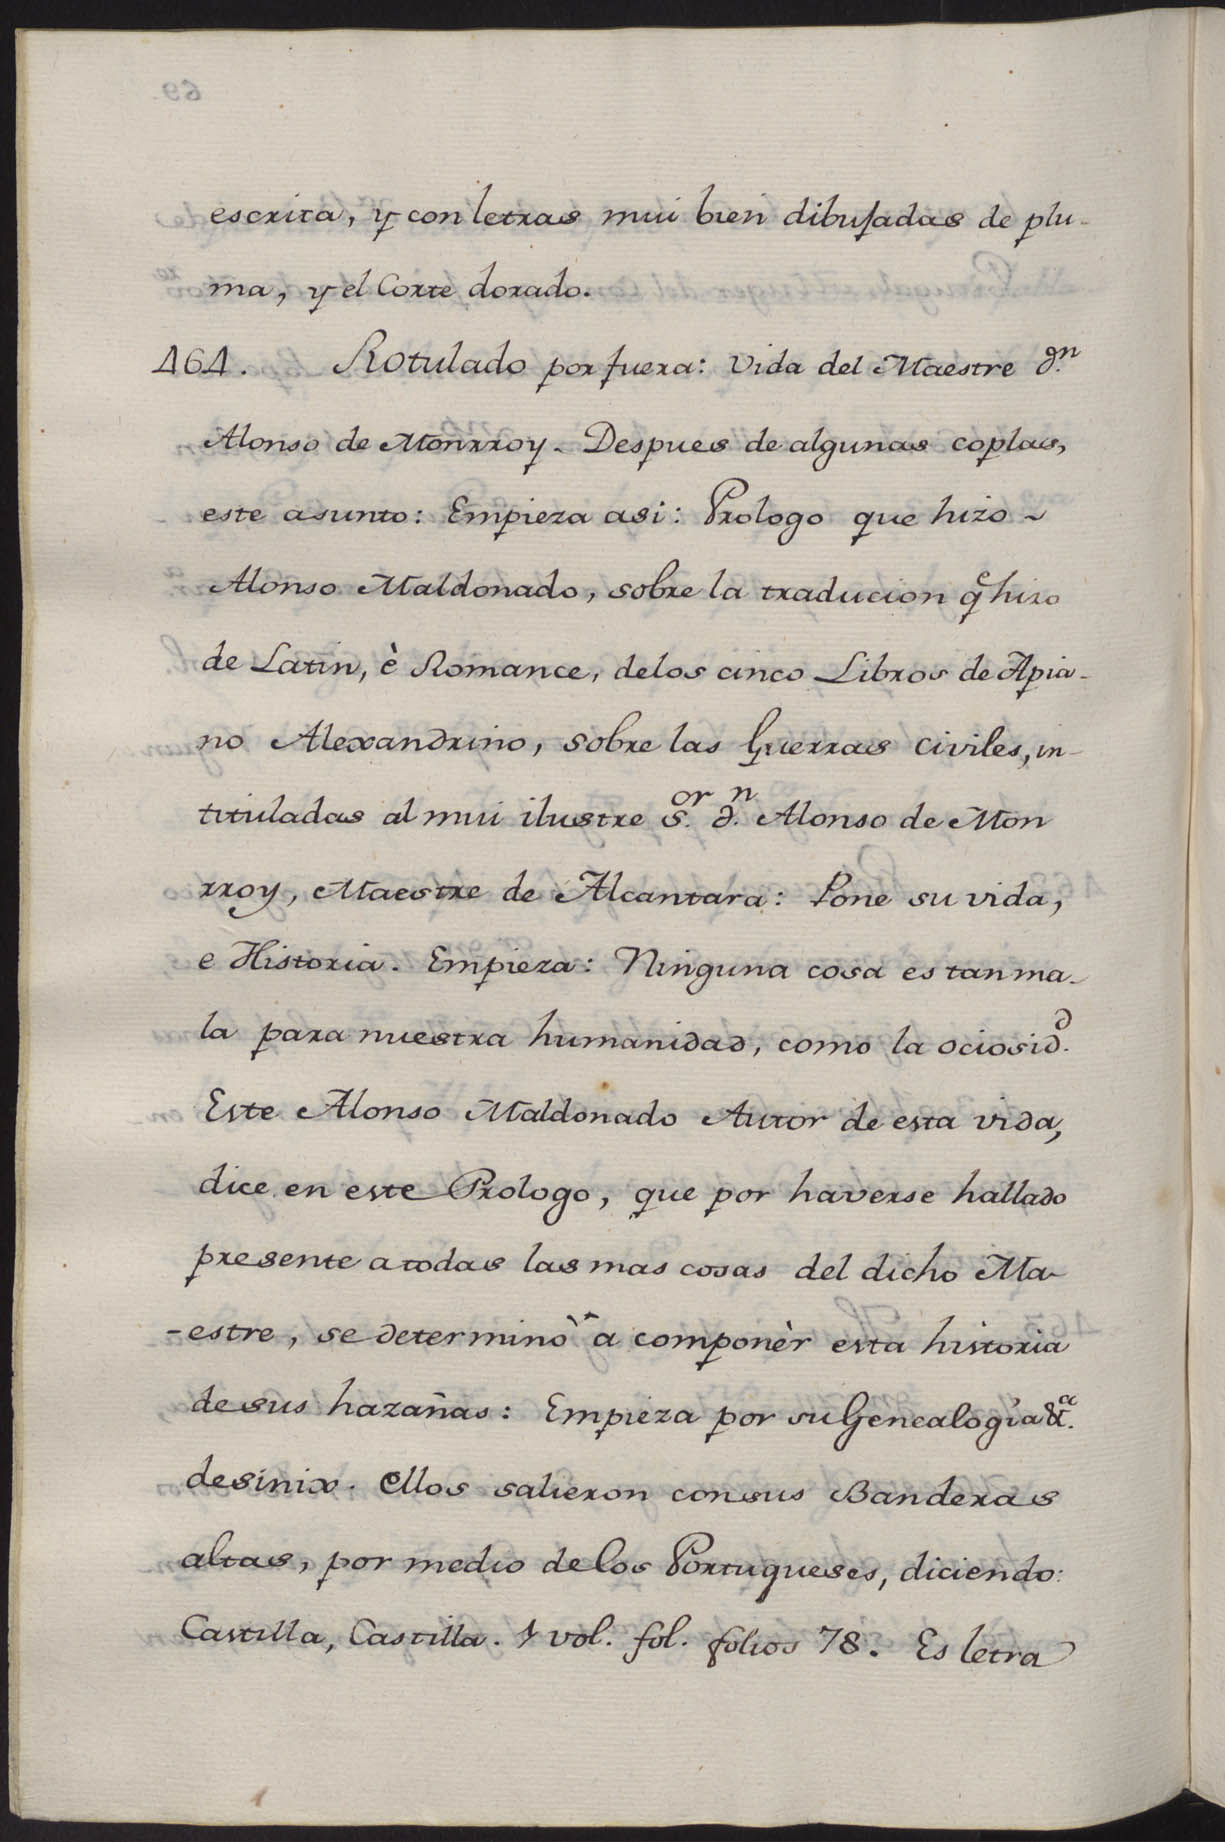 escrita, y con letras mui bien dibujadas de plu-
ma, y el Corte dorado.
464. Rotulado por fuera: Vida del Maestre d.ⁿ
Alonso de Monrroy. Despues de algunas coplas,
este asunto: Empieza asi: Prologo que hizo ~
Alonso Maldonado, sobre la traducion q.ᵉ hizo
de Latin, è Romance, delos cinco Libros de Apia-
no Alexandrino, sobre las Guerras Civiles, in-
tituladas al mui ilustre S.ᵒʳ d.ⁿ Alonso de Mon
rroy, Maestre de Alcantara: Pone su vida,
e Historia. Empieza: Ninguna cosa es tan ma-
la para nuestra humanidad, como la ociosid.ᵈ
Este Alonso Maldonado Autor de esta vida,
dice en este Prologo, que por haverse hallado
presente a todas las mas cosas del dicho Ma-
-estre, se determinò a componèr esta historia
de sus hazañas: Empieza por su Genealogía &.ᵃ
desinix. Ellos salieron con sus Banderas
altas, por medio de los Portugueses, diciendo:
Castilla, Castilla. 1 vol. fol. folios 78. Es letra